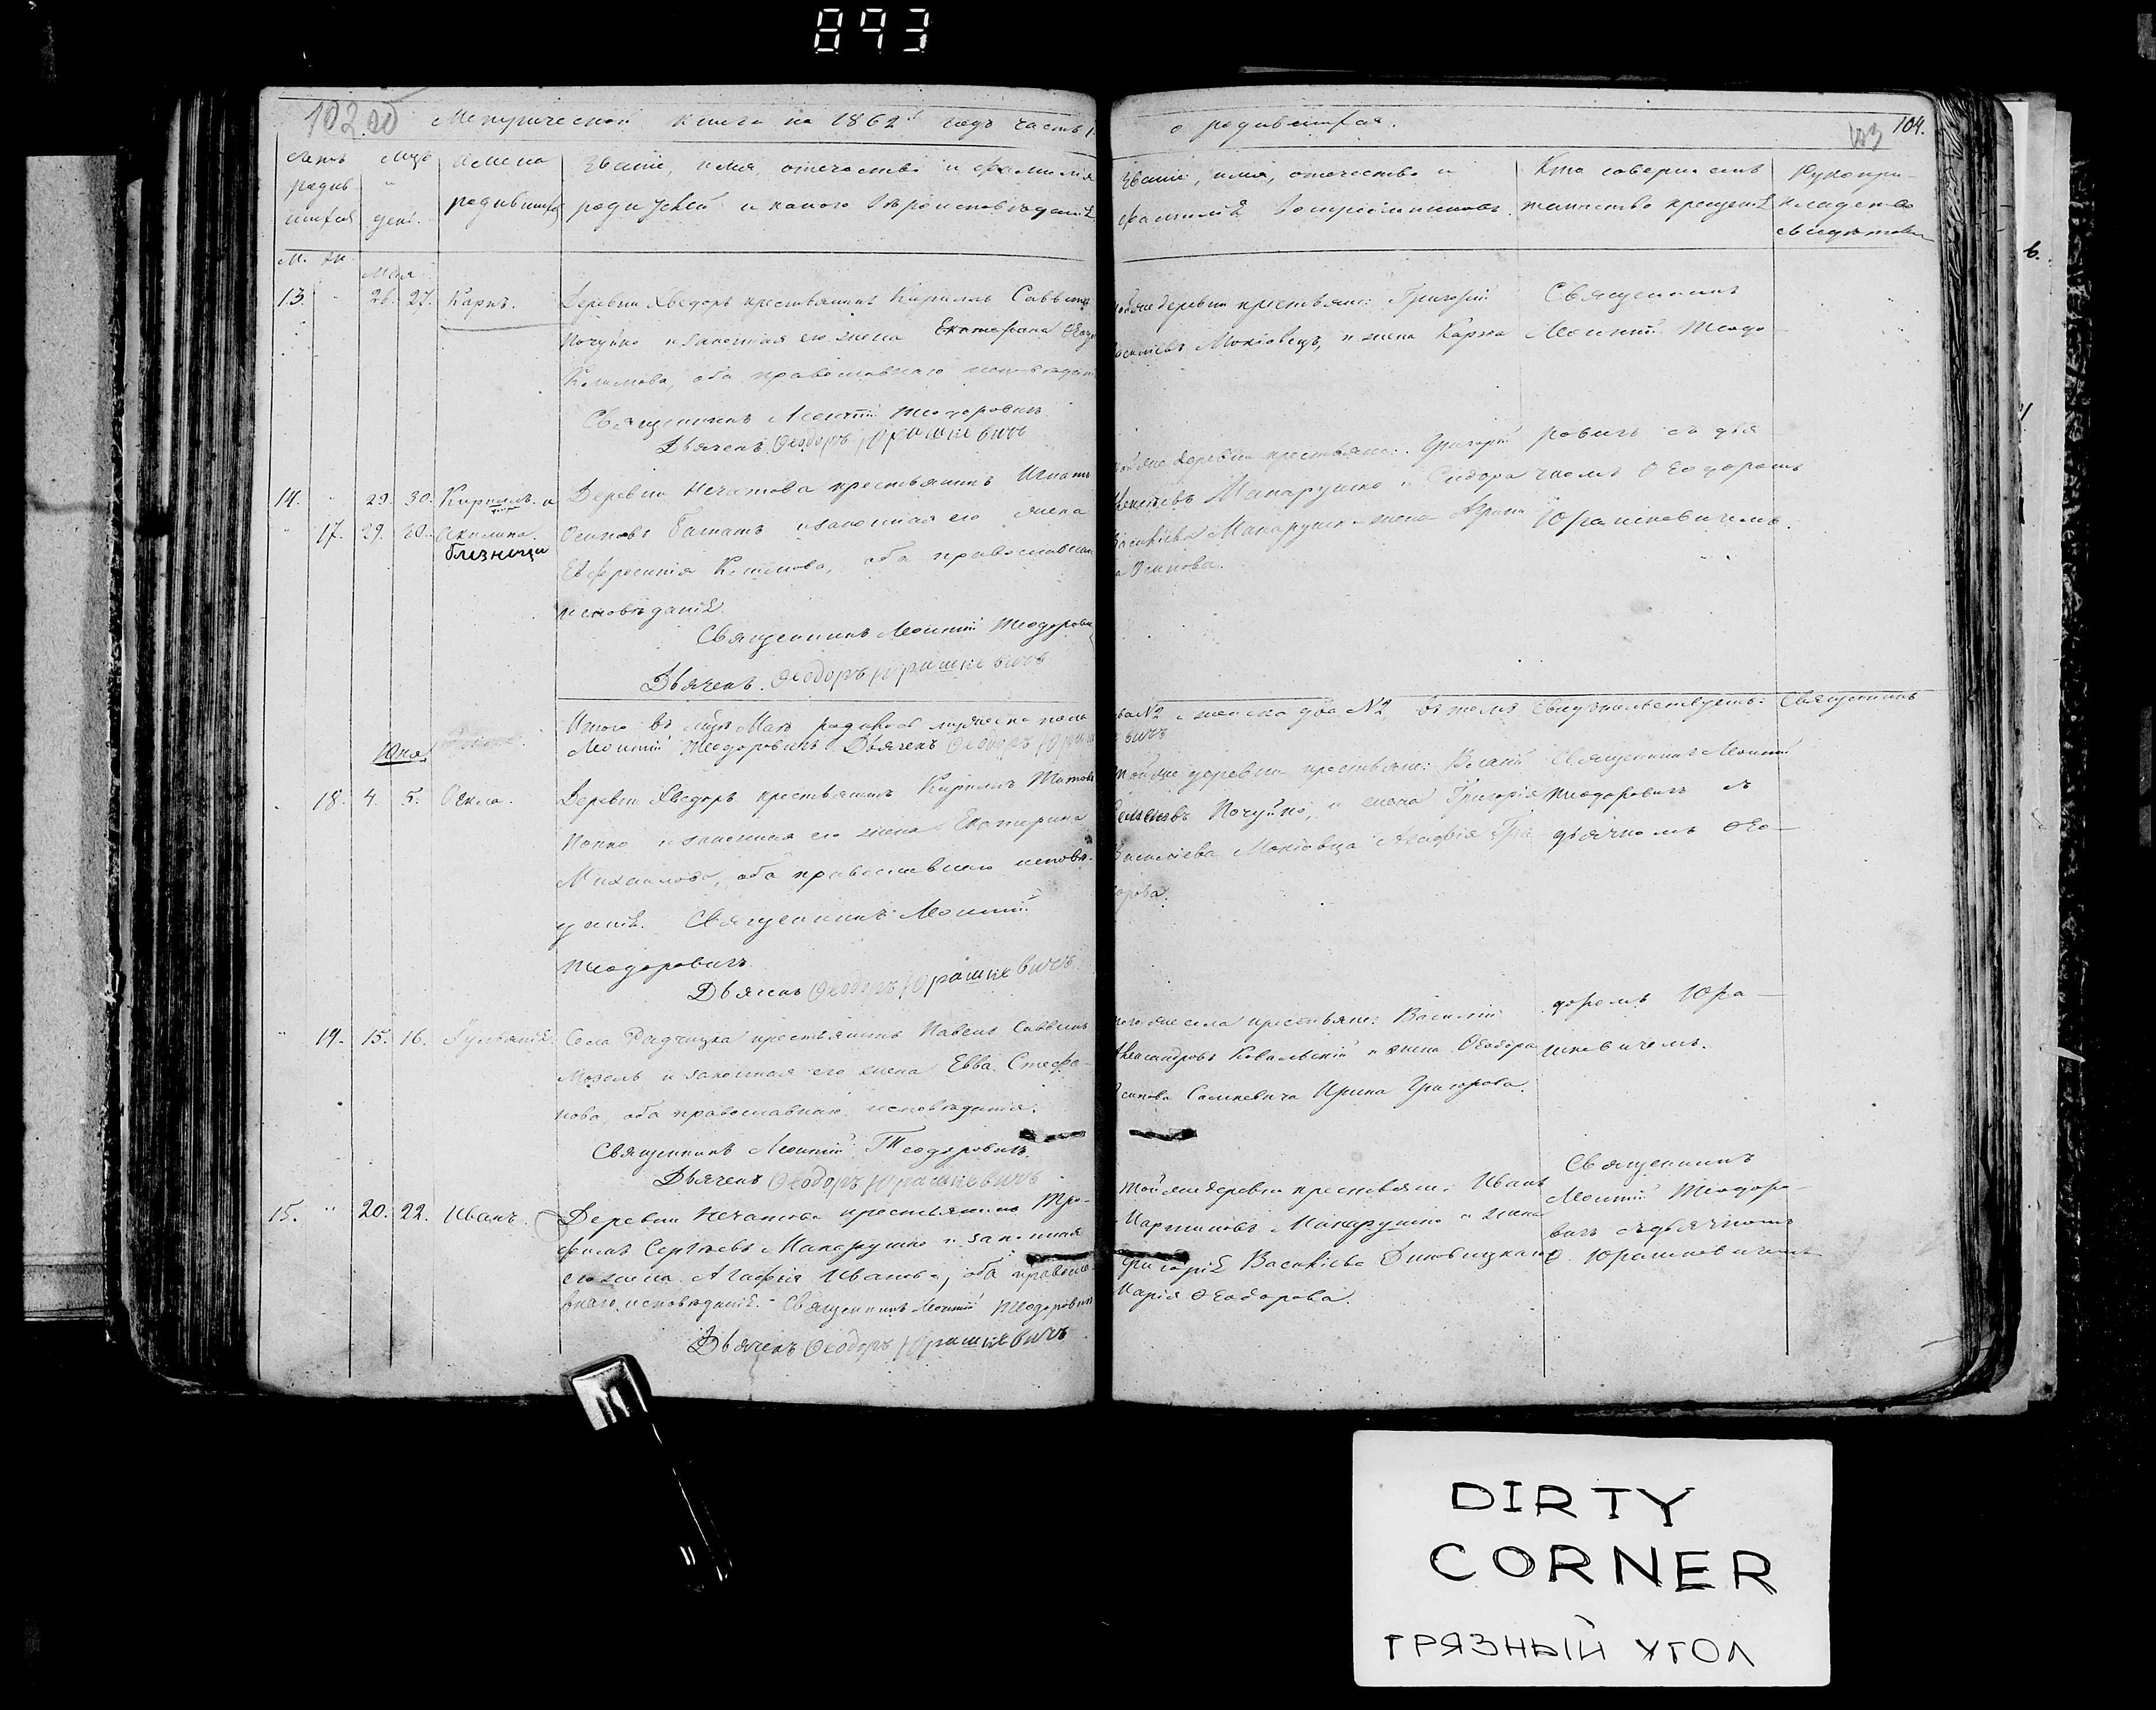 893
102 об
Метрической книги на 1862й годъ часть 1.
о родившихся.
103
104.
Счетъ
родив
шихся
Мцъ
и
день.
Имена
родившихся
Званіе, имя, отечество и фамилія
родителей и какого вѣроисповѣданія
Званіе, имя, отечество и
фамилія воспріемниковъ.
Кто совершалъ
таинство крещенія
Рукопри-
кладство
М. Ж.
Мая
13. 26. 27. Карпъ.
Деревни Хведоръ крестьянинъ Кириллъ Саввинъ
Почуйко и законная его жена Екатерина
Климова, оба православнаго исповѣданія
Священникъ Леонтій Теодоровичъ
Дьячекъ Ѳеодоръ Юрашкевичъ
деревни крестьяне: Григорій
Мокіовецъ, и жена Карпа
Священникъ
Леонтій Теодо
14. 29. 30. Кириллъ и
17. 29. 30. Акилина.
близнецы
Деревни Нечатова крестьянинъ Игнатъ
Осиповъ и законная его жена
Евфросинія, оба православнаго
исповѣданія.
Священникъ Леонтій Теодорович
Дьячекъ Ѳеодоръ Юрашкевичъ
деревни крестьяне: Григорій
Макарушко и Сидора
Василіева Макарушко жена
Осипова.
ровичъ съ дья
чкомъ Ѳеодоромъ
Юрашкевичемъ.
Итого въ мцѣ Маѣ родилось мужеска пола
два №2 и женска два №2 въ томъ свидѣтельствуетъ: Священникъ
Леонтій Теодоровичъ Дьячекъ Ѳеодоръ Юрашкевичъ
Юня
18. 4. 5. Ѳекла.
Деревни Хведоръ крестьянинъ Кириллъ Титовъ
Попко и законная его жена Екатерина
Михаилова, оба православнаго исповѣ-
данія. Священникъ Леонтій
Теодоровичъ
Дьячекъ Ѳеодоръ Юрашкевичъ
Тойже деревни крестьяне:
Почуйко, и жена Григорія
Василіева Мокіовца Агафія
Священникъ Леонтій
Теодоровичъ съ
дьячкомъ Ѳео-
19. 15. 16. Гуліанія.
Села Радчицка крестьянинъ Павелъ Саввинъ
Мозоль и законная его жена Евва Стефа-
нова, оба православнаго исповѣданія.
Священникъ Леонтій Теодоровичъ.
Дьячекъ Ѳеодоръ Юрашкевичъ
тогоже села крестьяне: Василій
Александровъ Ковальскій и жена Ѳеодора
Осипова Салкевича Ирина Григорова.
доромъ Юра-
шкевичемъ.
15. 20. 22. Иванъ.
Деревни Нечатова крестьянинъ Тро-
фимъ Сергѣевъ Макарушко и законная
его жена Агафія Иванова, оба правосла-
внаго исповѣданія. Священникъ Леонтій Теодоровичъ
Дьячекъ Ѳеодоръ Юрашкевичъ
Тойже деревни крестьяне: Иванъ
Мартиновъ Макарушко и жена
Григорія Василіева
Марія Ѳеодорова.
Священникъ
Леонтій Теодоро-
вичъ съ дьячкомъ
Ѳ. Юрашкевичемъ
DIRTY
CORNER
ГРЯЗНЫЙ УГОЛ